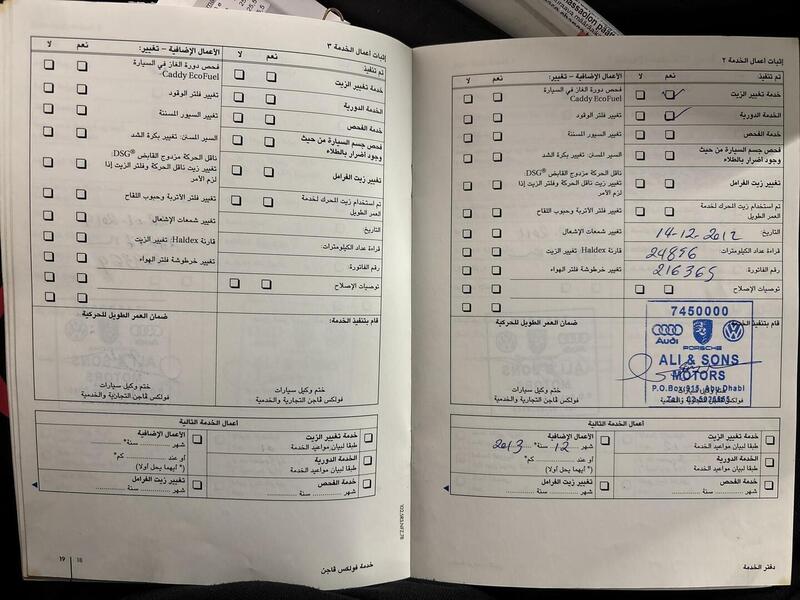 إثباتات أعمال الخدمة ٢
تم تنفيذ:
نعم
لا
الأعمال الإضافية – تغيير:
نعم
لا
خدمة تغيير الزيت
الخدمة الدورية
خدمة الفحص
فحص جسم السيارة من حيث
وجود أضرار بالطلاء
تغيير زيت الفرامل
تم استخدام زيت المحرك لخدمة
العمر الطويل
التاريخ: 14-12-2012
قراءة عداد الكيلومترات: 24896
رقم الفاتورة: 216365
توصيات الإصلاح
فحص دورة الغاز في السيارة
Caddy EcoFuel
تغيير فلتر الوقود
تغيير السيور المسننة
السير المسنن: تغيير بكرة الشد
ناقل الحركة مزدوج القابض DSG®:
تغيير زيت ناقل الحركة وفلتر الزيت إذا
لزم الأمر
تغيير فلتر الأتربة وحبوب اللقاح
تغيير شمعات الإشعال
قارنة Haldex: تغيير الزيت
تغيير خرطوشة فلتر الهواء
قام بتنفيذ الخدمة:
ضمان العمر الطويل للحركية
7450000
Audi
PORSCHE
ALI & SONS
MOTORS
P.O.Box 915, Abu Dhabi
ختم وكيل سيارات
فولكس ڤاجن التجارية والخدمية
أعمال الخدمة التالية
خدمة تغيير الزيت
طبقا لبيان مواعيد الخدمة
الخدمة الدورية
طبقا لبيان مواعيد الخدمة
خدمة الفحص
شهر ............ سنة ............
الأعمال الإضافية
شهر 12 سنة* 2013
أو عند كم*
(* أيهما يحل أولا)
تغيير زيت الفرامل
شهر ............ سنة ............
دفتر الخدمة
إثباتات أعمال الخدمة ٣
تم تنفيذ:
نعم
لا
الأعمال الإضافية – تغيير:
نعم
لا
خدمة تغيير الزيت
الخدمة الدورية
خدمة الفحص
فحص جسم السيارة من حيث
وجود أضرار بالطلاء
تغيير زيت الفرامل
تم استخدام زيت المحرك لخدمة
العمر الطويل
التاريخ:
قراءة عداد الكيلومترات:
رقم الفاتورة:
توصيات الإصلاح
فحص دورة الغاز في السيارة
Caddy EcoFuel
تغيير فلتر الوقود
تغيير السيور المسننة
السير المسنن: تغيير بكرة الشد
ناقل الحركة مزدوج القابض DSG®:
تغيير زيت ناقل الحركة وفلتر الزيت إذا
لزم الأمر
تغيير فلتر الأتربة وحبوب اللقاح
تغيير شمعات الإشعال
قارنة Haldex: تغيير الزيت
تغيير خرطوشة فلتر الهواء
قام بتنفيذ الخدمة:
ضمان العمر الطويل للحركية
ختم وكيل سيارات
فولكس ڤاجن التجارية والخدمية
أعمال الخدمة التالية
خدمة تغيير الزيت
طبقا لبيان مواعيد الخدمة
الخدمة الدورية
طبقا لبيان مواعيد الخدمة
خدمة الفحص
شهر ............ سنة ............
الأعمال الإضافية
شهر ............ سنة*
أو عند كم*
(* أيهما يحل أولا)
تغيير زيت الفرامل
شهر ............ سنة ............
خدمة فولكس ڤاجن
18
19